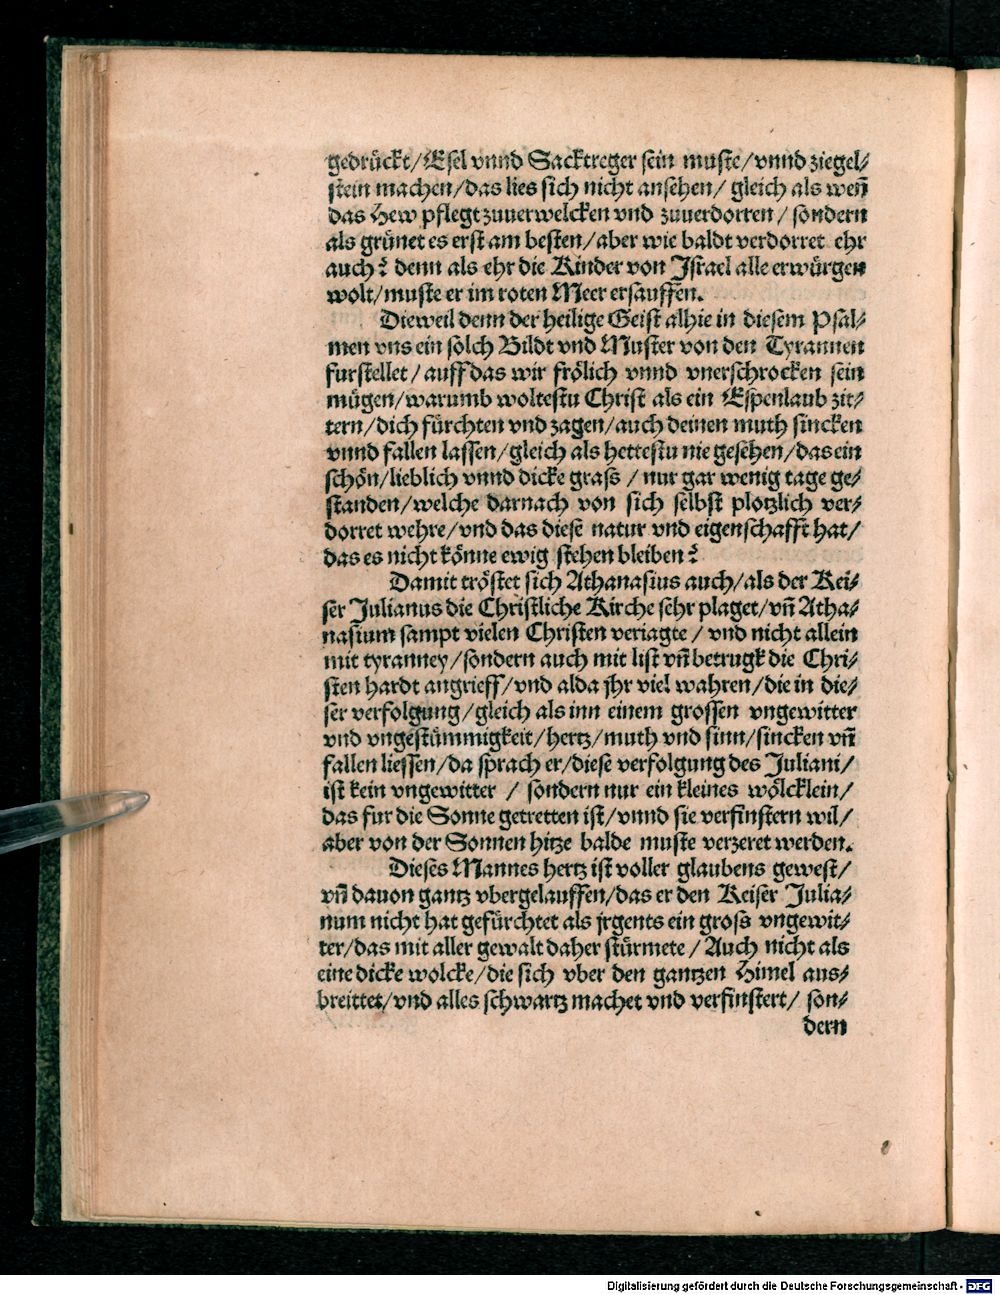 gedrückt/Esel vnnd Sacktreger sein muste/vnnd ziegel-
stein machen/das lies sich nicht ansehen/ gleich als weñ
das Hew pflegt zuuerwelcken vnd zuuerdorren/ sondern
als grünet es erst am besten/aber wie baldt verdorret ehr
auch? denn als ehr die Kinder von Israel alle erwürgen
wolt/muste er im roten Meer ersauffen.
Dieweil denn der heilige Geist alhie in diesem Psal-
men vns ein solch Bildt vnd Muster von den Tyrannen
furstellet/ auff das wir frölich vnnd vnerschrocken sein
mügen/warumb woltestu Christ als ein Espenlaub zit-
tern/dich fürchten vnd zagen/auch deinen muth sincken
vnnd fallen lassen/gleich als hettestu nie gesehen/das ein
schön/lieblich vnnd dicke grass / nur gar wenig tage ge-
standen/welche darnach von sich selbst plotzlich ver-
dorret wehre/vnd das diese natur vnd eigenschafft hat/
das es nicht könne ewig stehen bleiben?
Damit tröstet sich Athanasius auch/als der Kei-
ser Julianus die Christliche Kirche sehr plaget/vñ Atha-
nasium sampt vielen Christen veriagte / vnd nicht allein
mit tyranney/sondern auch mit list vñ betrugk die Chri-
sten hardt angrieff/vnd alda jhr viel wahren/die in die-
ser verfolgung/gleich als inn einem grossen vngewitter
vnd vngestümmigkeit/hertz/muth vnd sinn/sincken vñ
fallen liessen/da sprach er/diese verfolgung des Juliani/
ist kein vngewitter / sondern nur ein kleines wölcklein/
das fur die Sonne getretten ist/vnnd sie verfinstern wil/
aber von der Sonnen hitze balde muste verzeret werden.
Dieses Mannes hertz ist voller glaubens gewest/
vñ dauon gantz vbergelauffen/das er den Keiser Julia-
num nicht hat gefürchtet als jrgents ein gross vngewit-
ter/das mit aller gewalt daher stürmete / Auch nicht als
eine dicke wolcke/die sich vber den gantzen Himel aus-
breittet/vnd alles schwartz machet vnd verfinstert/ son-
dern
Digitalisierung gefördert durch die Deutsche Forschungsgemeinschaft - DFG